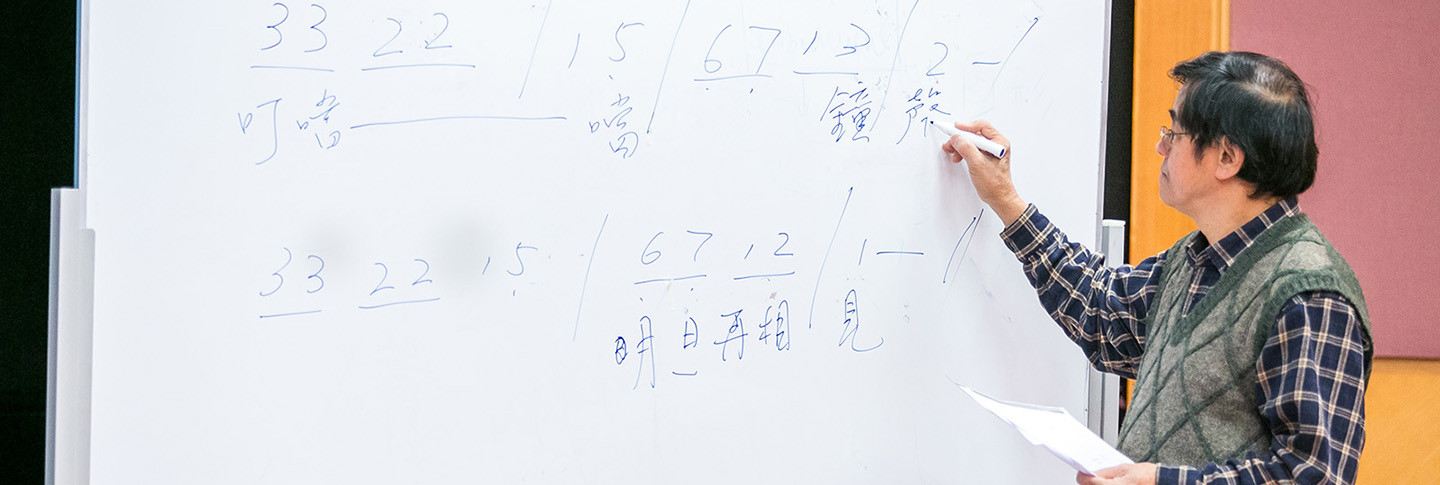 33 22 / 1 5 / 67 13 / 2 - /
叮噹——噹 鐘聲
33 22 15 / 67 12 / 1 — //
明日再相見